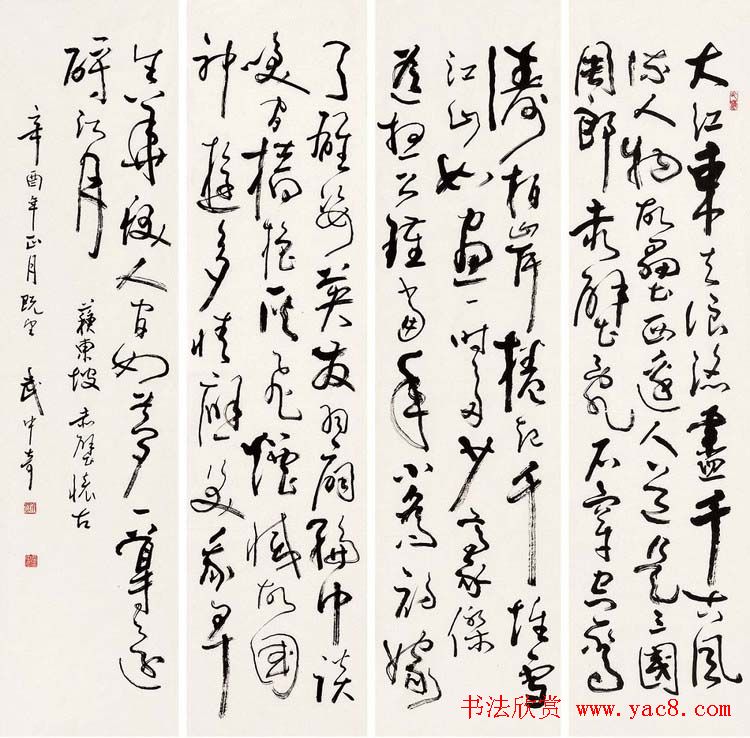 大江東去浪淘盡千古風
流人物故壘西邊人道是三國
周郎赤壁亂石穿空驚
濤拍岸捲起千堆雪
江山如畫一時多少豪傑
遙想公瑾當年小喬初嫁
了雄姿英發羽扇綸巾談
笑間檣櫓灰飛煙滅故國
神遊多情應笑我早
生華髮人間如夢一尊還
酹江月
蘇東坡 赤壁懷古
辛酉年正月既望 武中奇
书法欣赏 www.yac8.com